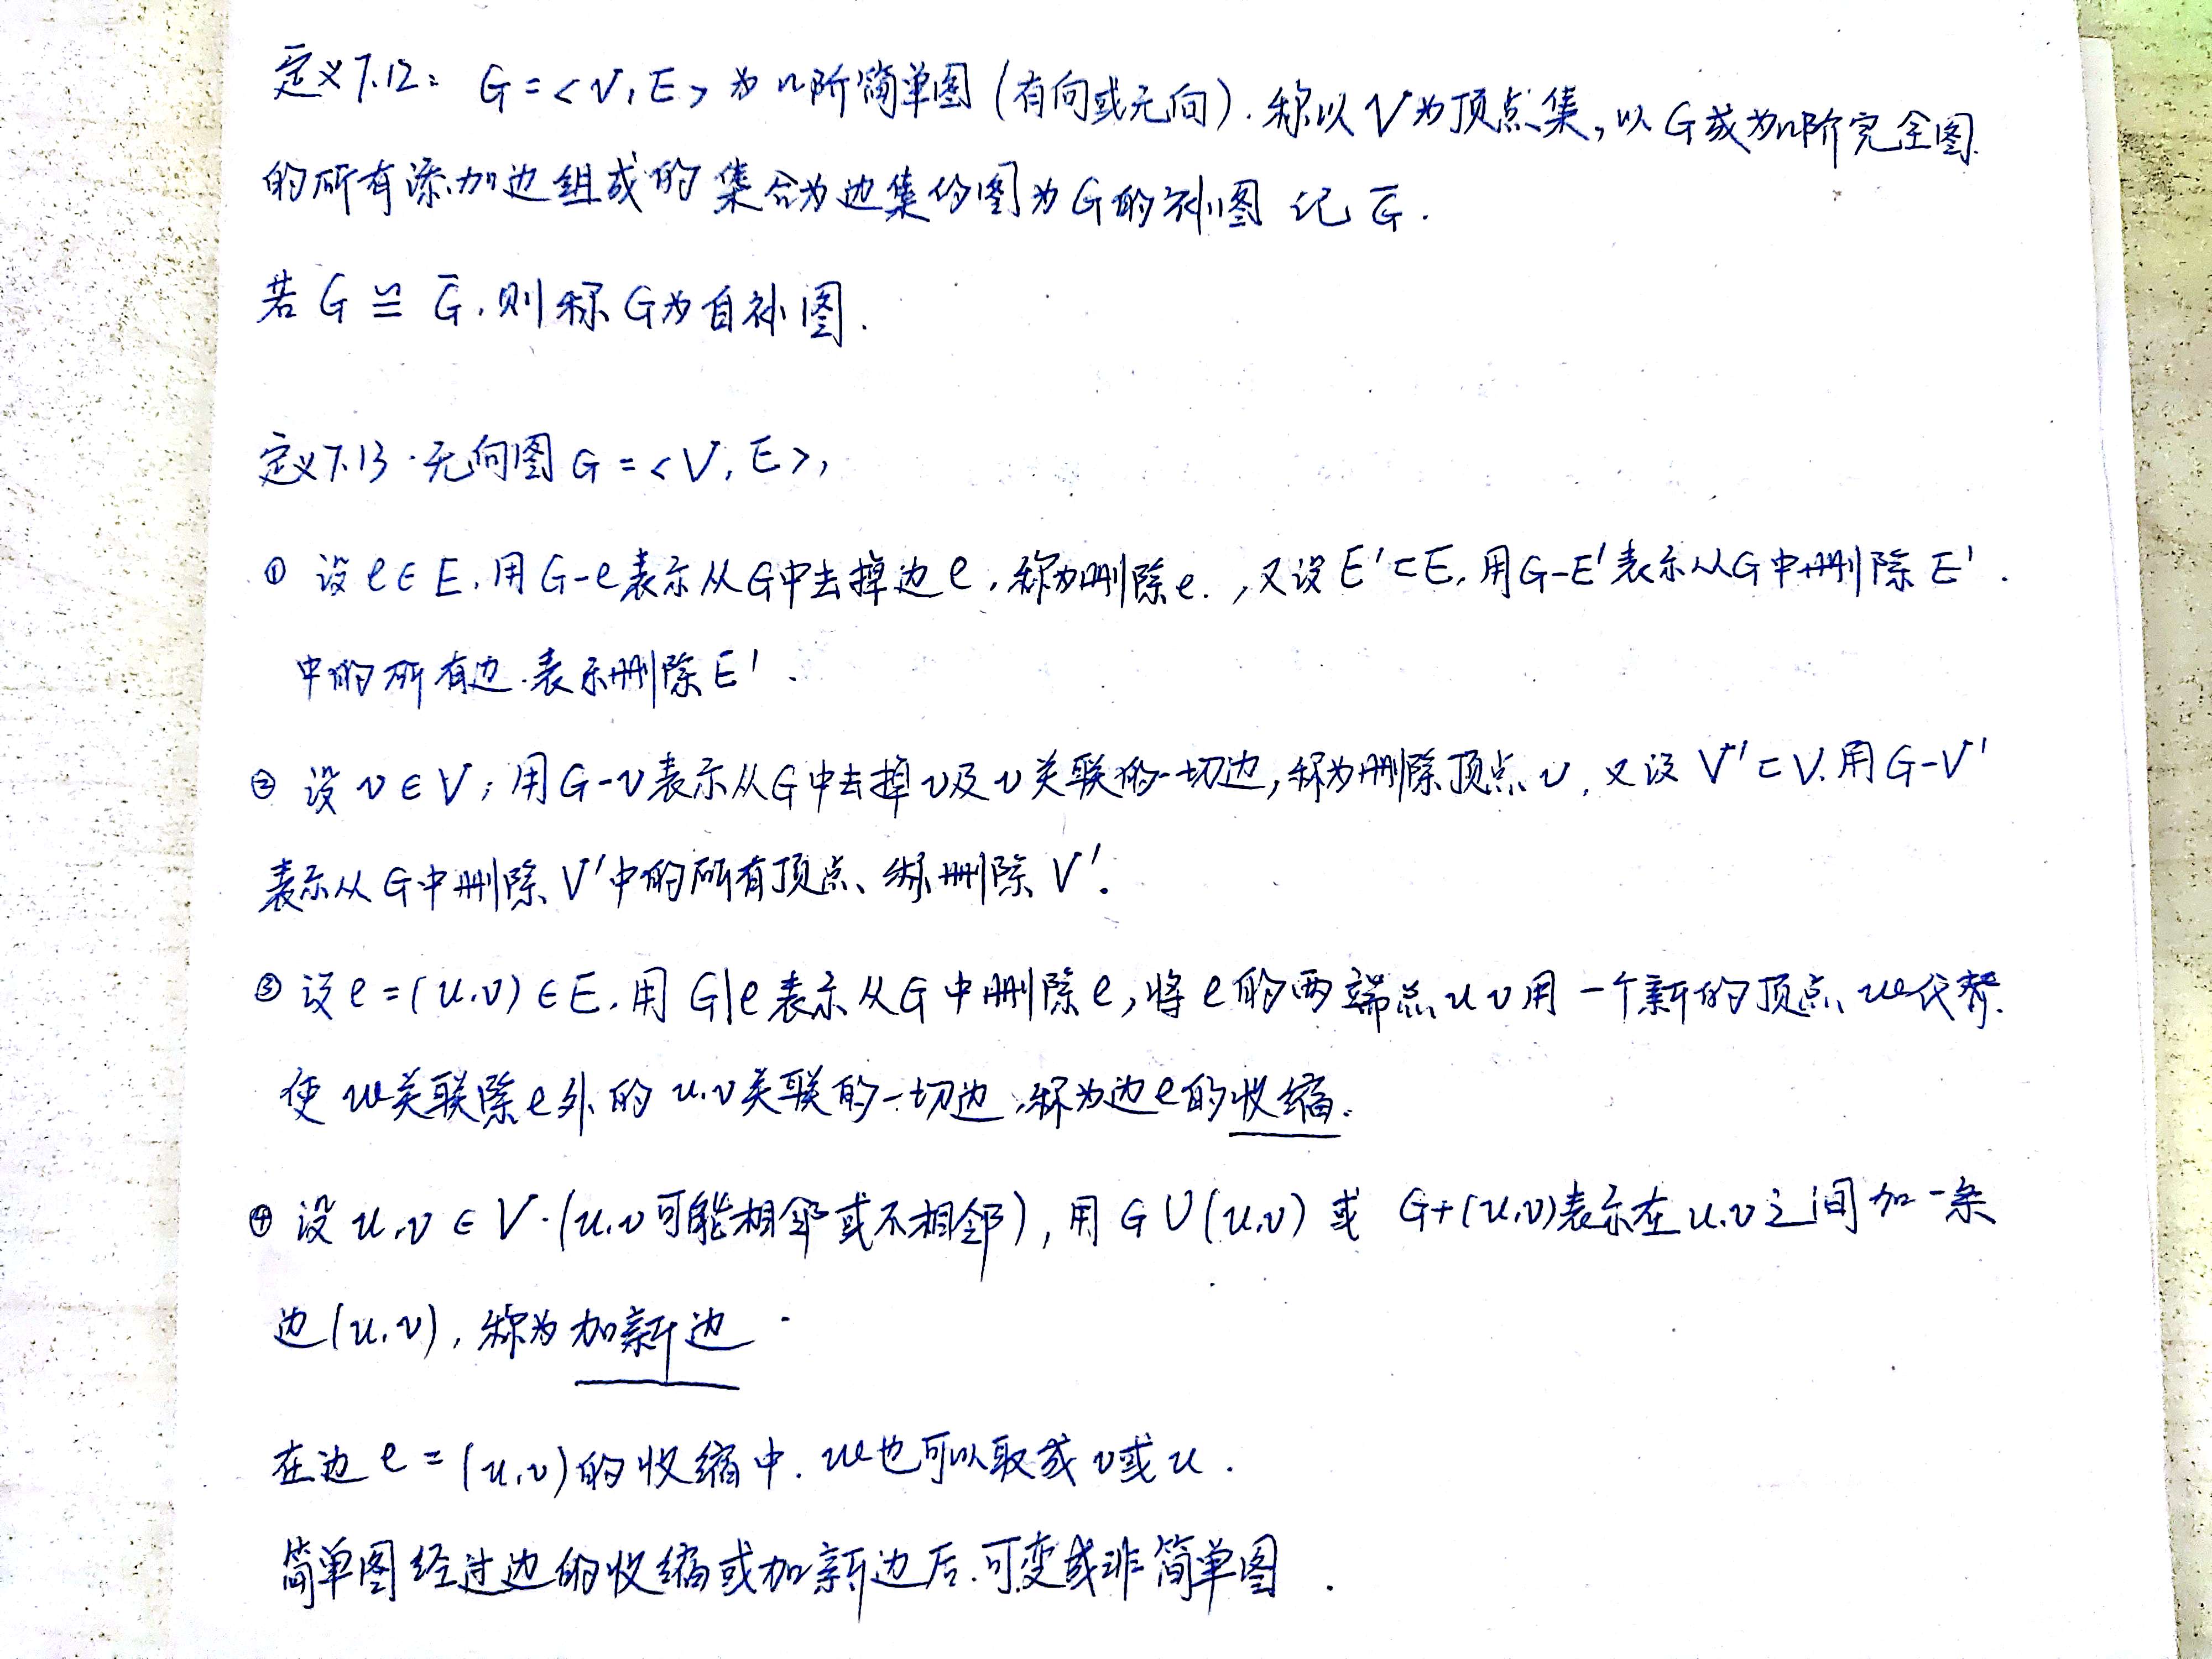 定义7.12: G=<V,E>为n阶简单图(有向或无向).称以V为顶点集,以G成为n阶完全图
的所有添加边组成的集合为边集的图为G的补图 记 Ḡ.
若 G ≅ Ḡ,则称G为自补图.
定义7.13.无向图G=<V,E>,
① 设e∈E,用G-e表示从G中去掉边e,称为删除e.,又设E'⊂E,用G-E'表示从G中删除E'.
中的所有边.表示删除E'.
② 设v∈V;用G-v表示从G中去掉v及v关联的一切边,称为删除顶点v,又设V'⊂V.用G-V'
表示从G中删除V'中的所有顶点、称删除V'.
③ 设e=(u,v)∈E.用G|e表示从G中删除e,将e的两端点u v用一个新的顶点w代替.
使w关联除e外的u,v关联的一切边,称为边e的收缩.
④ 设u,v∈V.(u,v可能相邻或不相邻),用G∪(u,v)或 G+(u,v)表示在u,v之间加一条
边(u,v),称为加新边.
在边e=(u,v)的收缩中.w也可以取成v或u.
简单图经过边的收缩或加新边后.可变成非简单图.